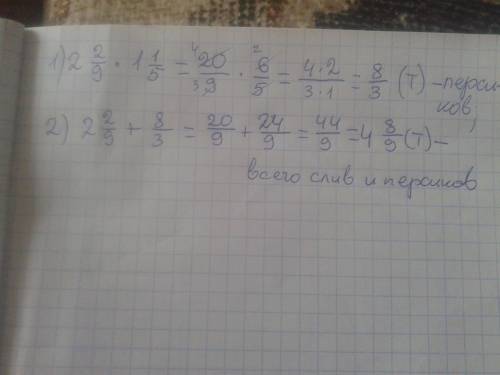 1) 2 2/9 · 1 1/5 = 20/9 · 6/5 = 4·2/3·1 = 8/3 (т) – перси-
ков,
2) 2 2/9 + 8/3 = 20/9 + 24/9 = 44/9 = 4 8/9 (т) –
всего слив и персиков